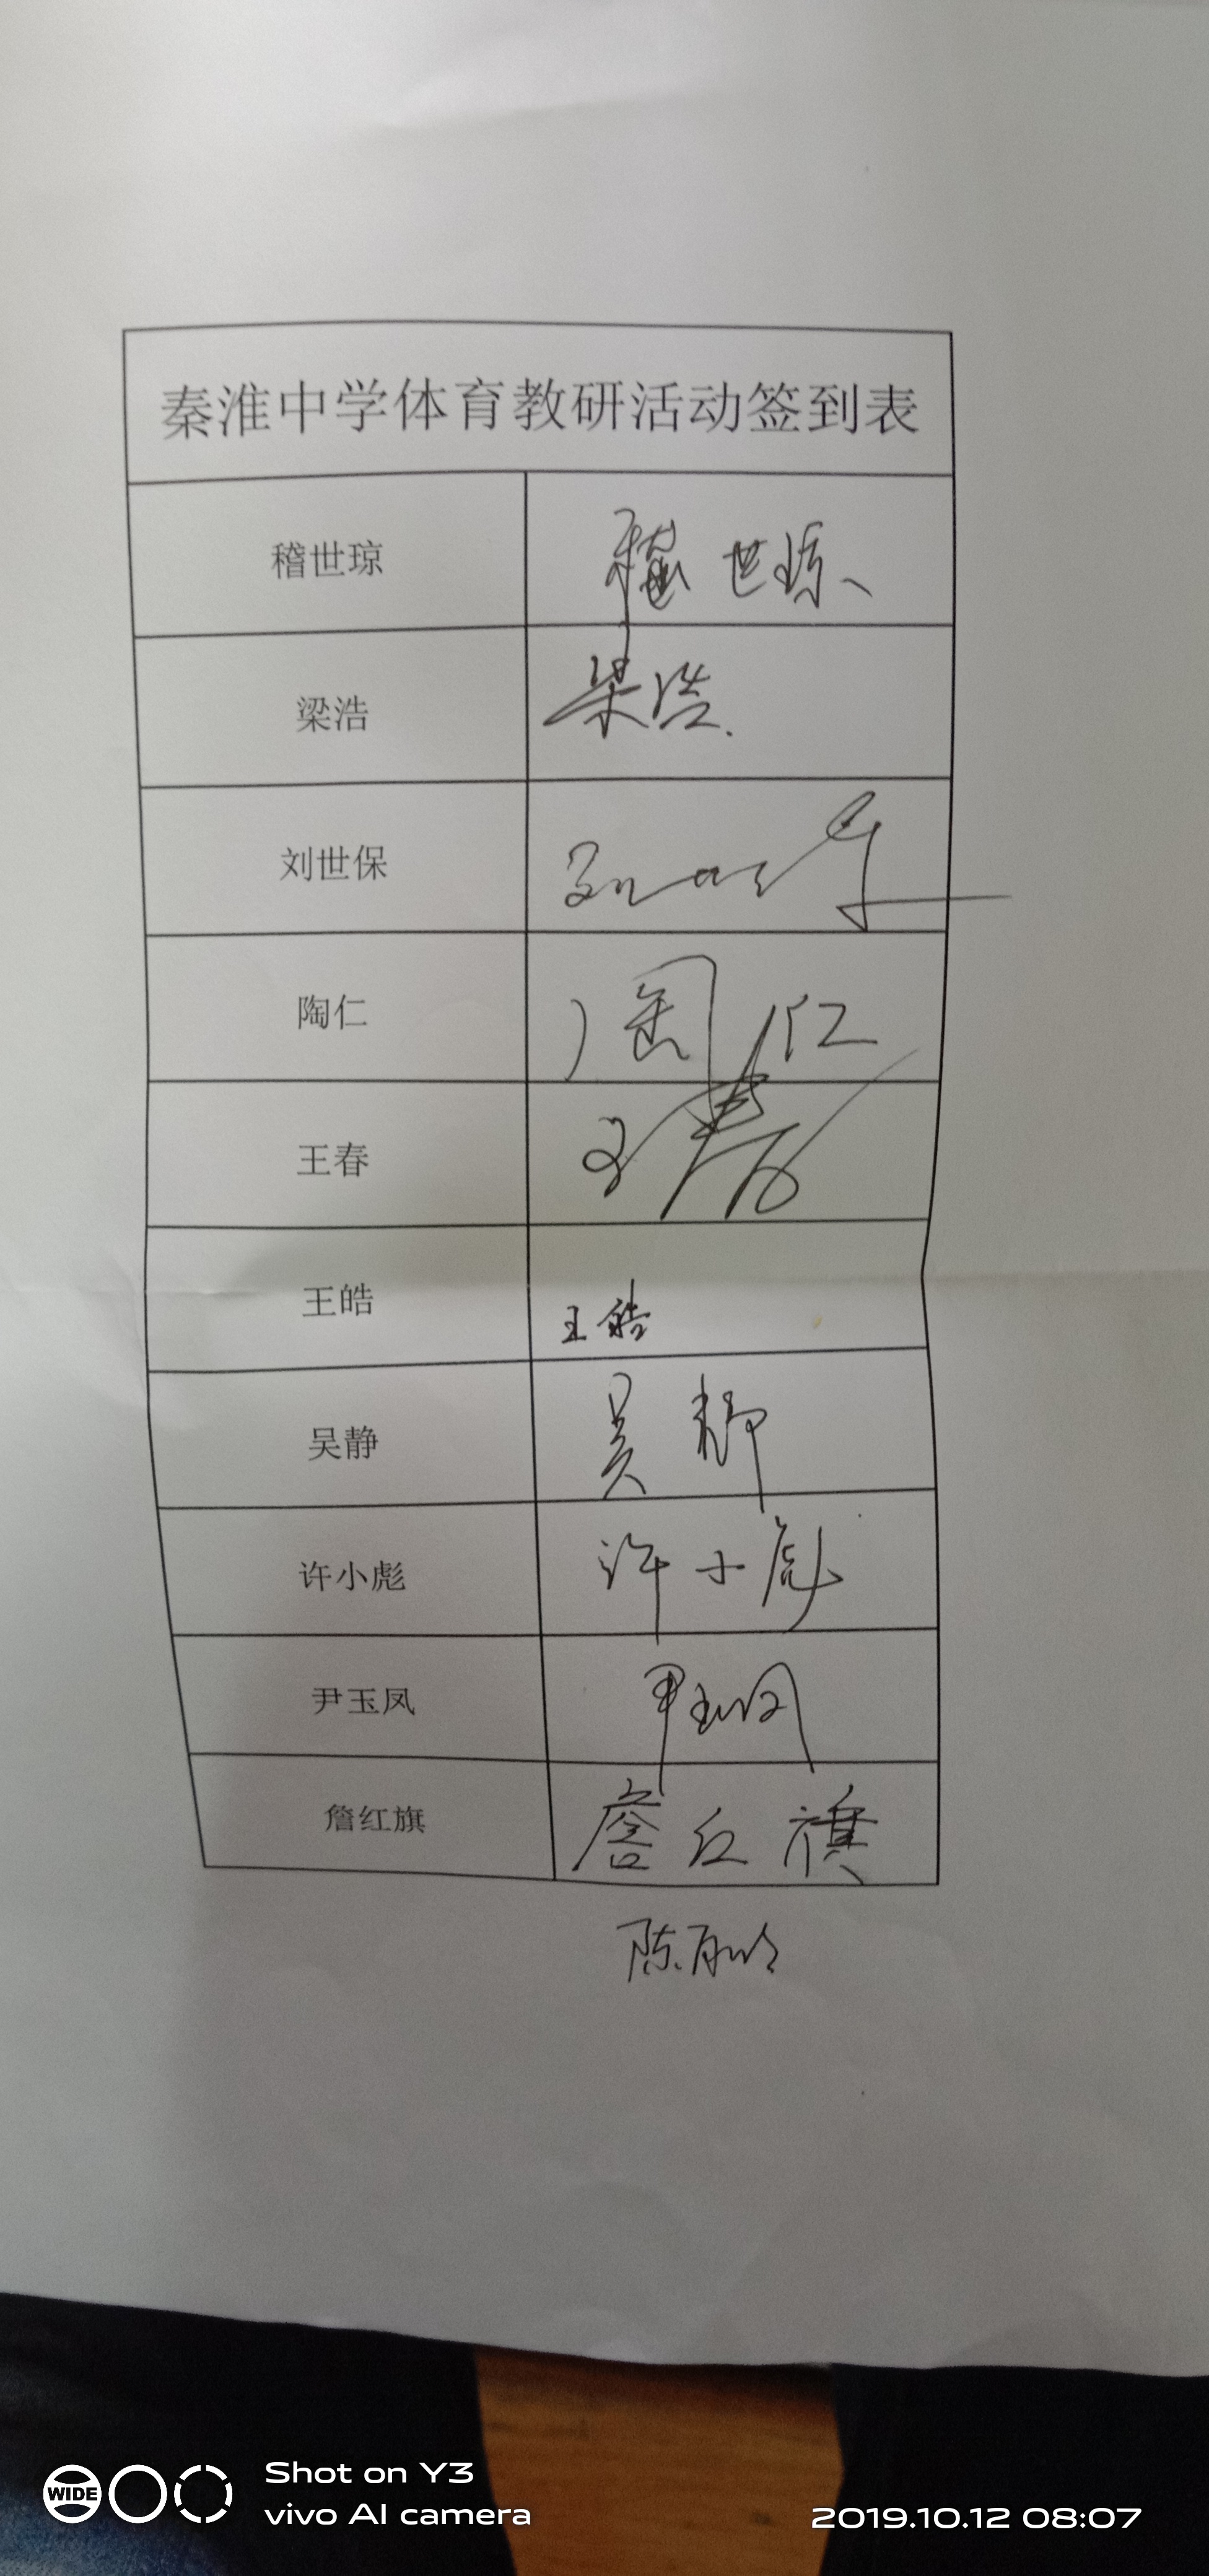 秦淮中学体育教研活动签到表
稽世琼 嵇世琼
梁浩 梁浩
刘世保
陶仁 陶仁
王春 王春
王皓 王皓
吴静 吴静
许小彪 许小彪
尹玉凤 尹玉凤
詹红旗 詹红旗
陈
WIDE
Shot on Y3
vivo AI camera
2019.10.12 08:07